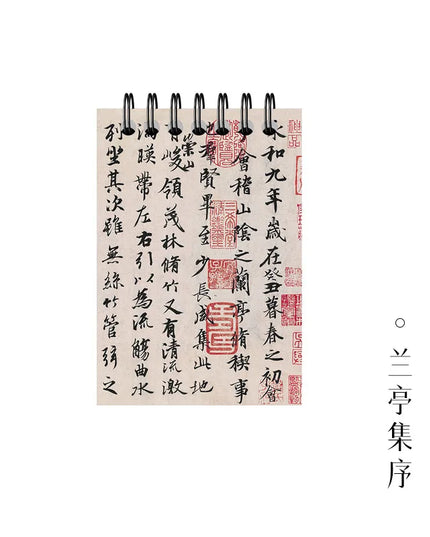 永和九年歲在癸丑暮春之初會
會稽山陰之蘭亭脩稧事
也羣賢畢至少長咸集此地
有崇山峻領茂林脩竹又有清流激
湍暎帶左右引以為流觴曲水
列坐其次雖無絲竹管弦之
兰亭集序